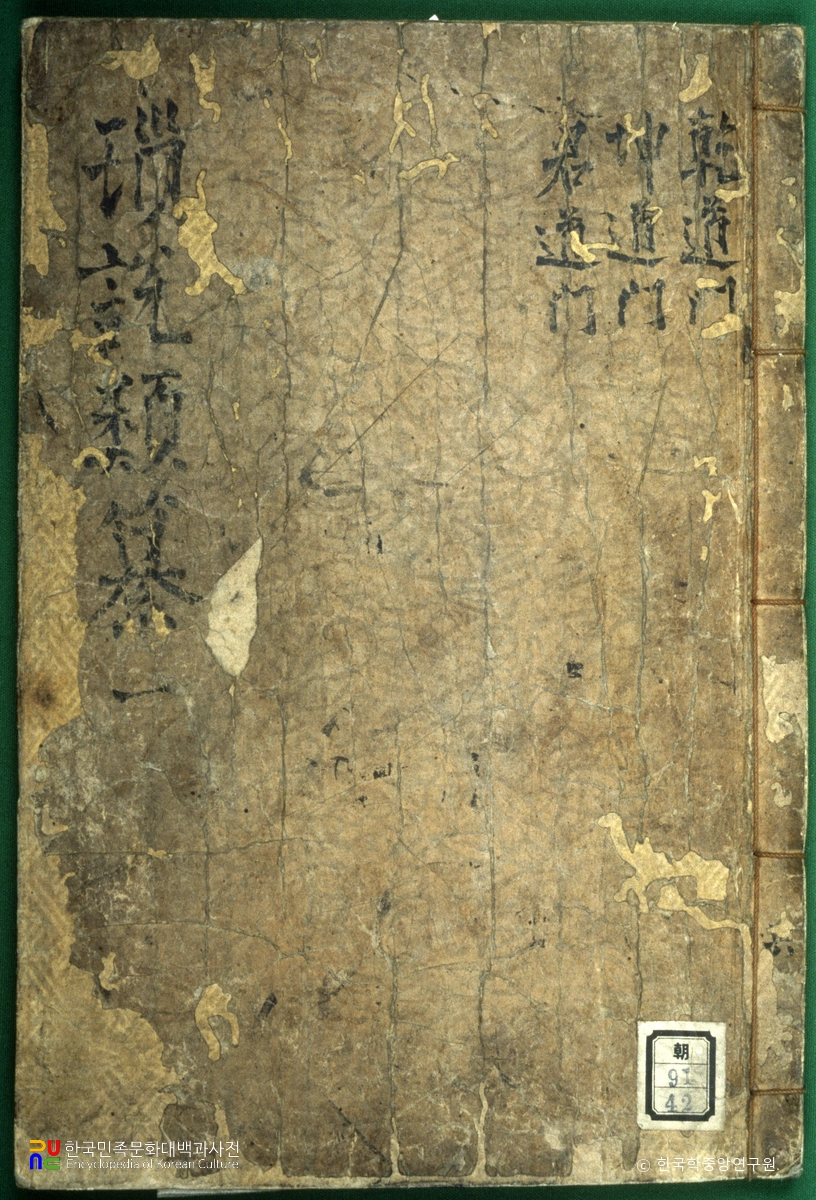 乾道門
坤道門
君道門
瑣說類纂 一
朝
91
42
한국민족문화대백과사전
Encyclopedia of Korean Culture
© 한국학중앙연구원